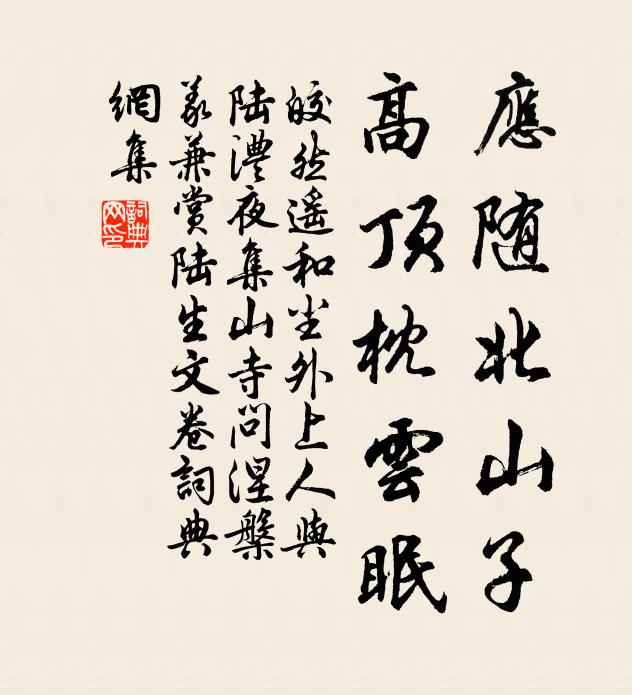 應随北山子
高頂枕雲眠
皎然遥和尘外上人與
陸澧夜集山寺問涅槃
義兼賞陸生文卷詞典
網集
詞典網印